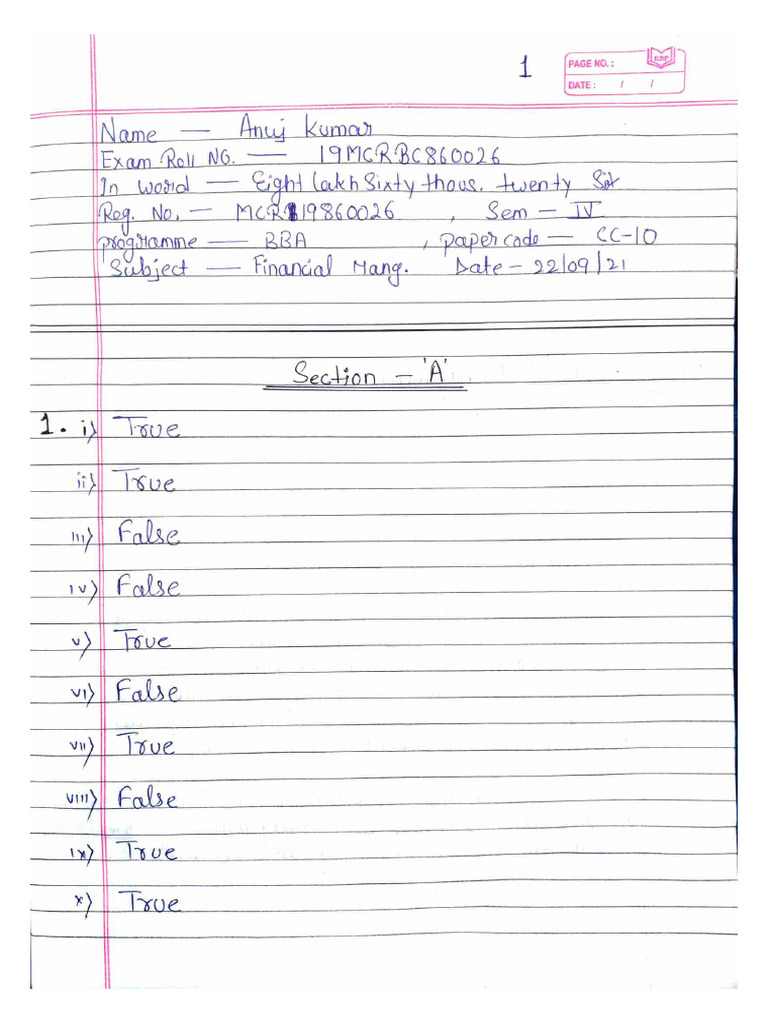 1
PAGE NO. :
DATE : / /
Name — Anuj Kumar
Exam Roll NO. — 19MCRBC860026
In word — Eight lakh Sixty thous. twenty Six
Reg. No. — MCR19860026 , Sem — IV
programme — BBA , paper code — CC-10
Subject — Financial Mang. Date - 22/09/21
Section - 'A'
1. i) True
ii) True
iii) False
iv) False
v) True
vi) False
vii) True
viii) False
ix) True
x) True